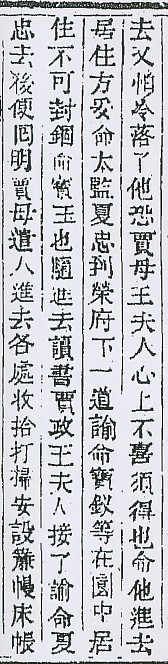 去又怕冷落了他恐賈母王夫人心上不喜須得也命他進去
居住方妥命太監夏忠到榮府下一道諭命寳釵等在園中居
住不可封錮命寳玉也隨進去讀書賈政王夫人接了諭命夏
忠去後便囘明賈母遣人進去各處收拾打掃安設簾幔床帳